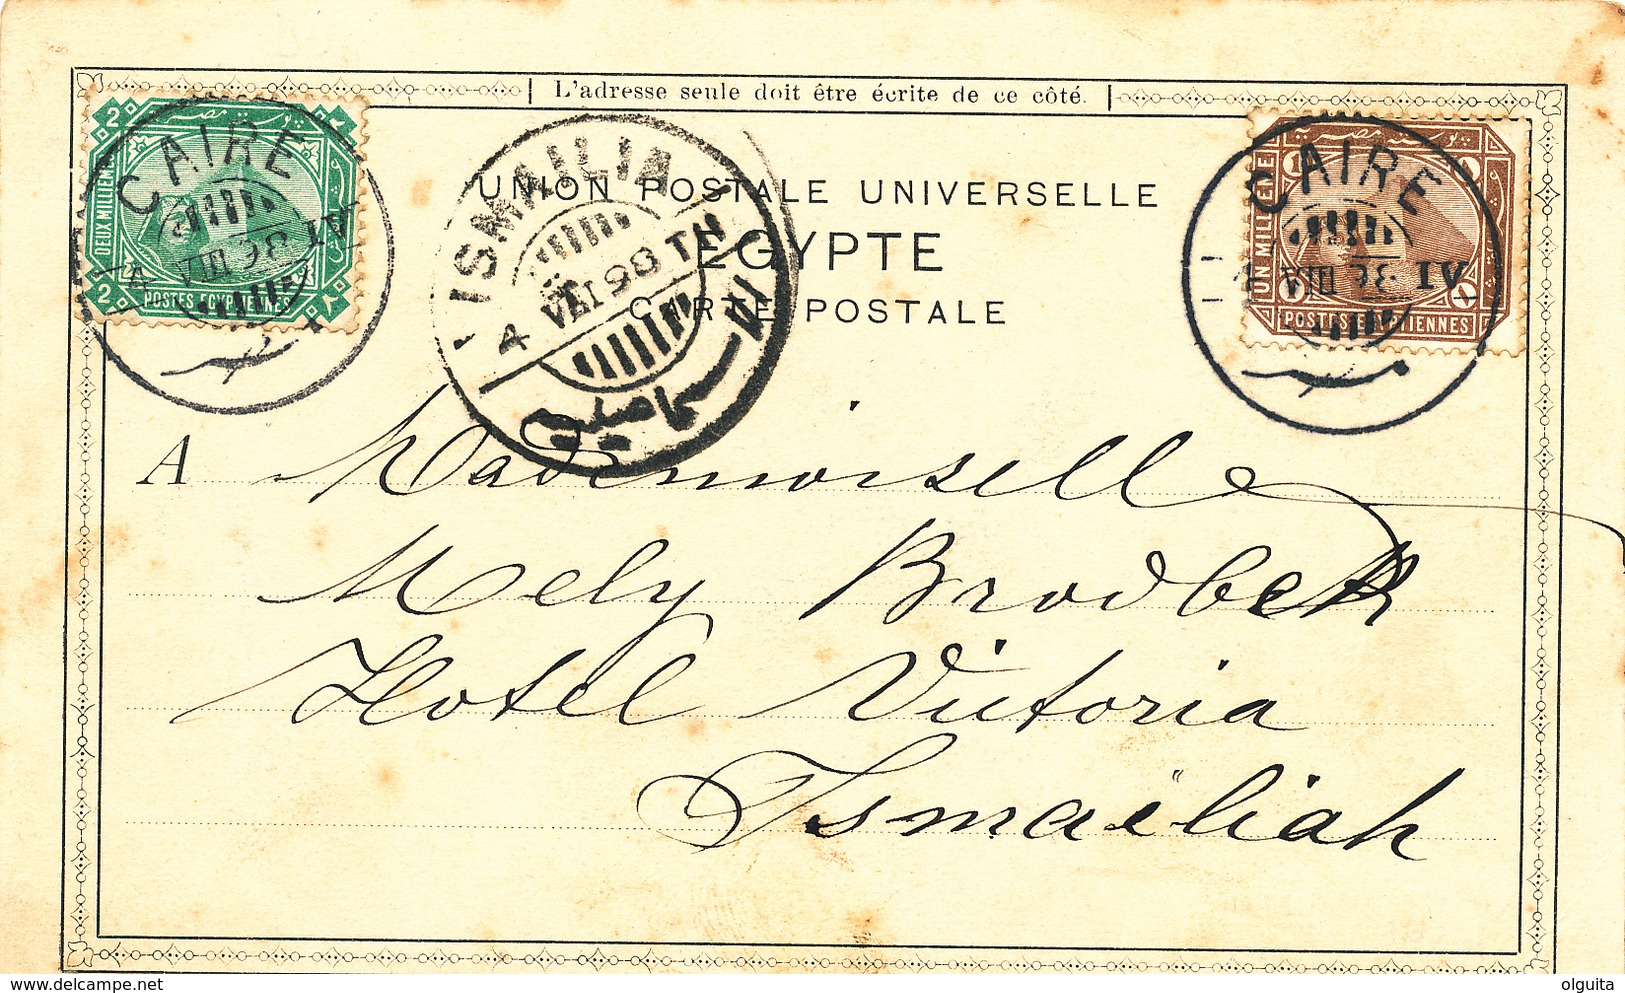 L'adresse seule doit être écrite de ce côté.
UNION POSTALE UNIVERSELLE
EGYPTE
CARTE POSTALE
2 2
DEUX MILLIEMES
POSTES EGYPTIENNES
2 ٢
CAIRE
VIII
ISMAILIA
4 VIII 98 T
اسماعيلية
1
بوسته مصريه
UN MILLIEME
POSTES EGYPTIENNES
CAIRE
VIII
A Mademoiselle
Mely Brodbeck
Hotel Victoria
Ismaëliah
delcampe.net
olguita